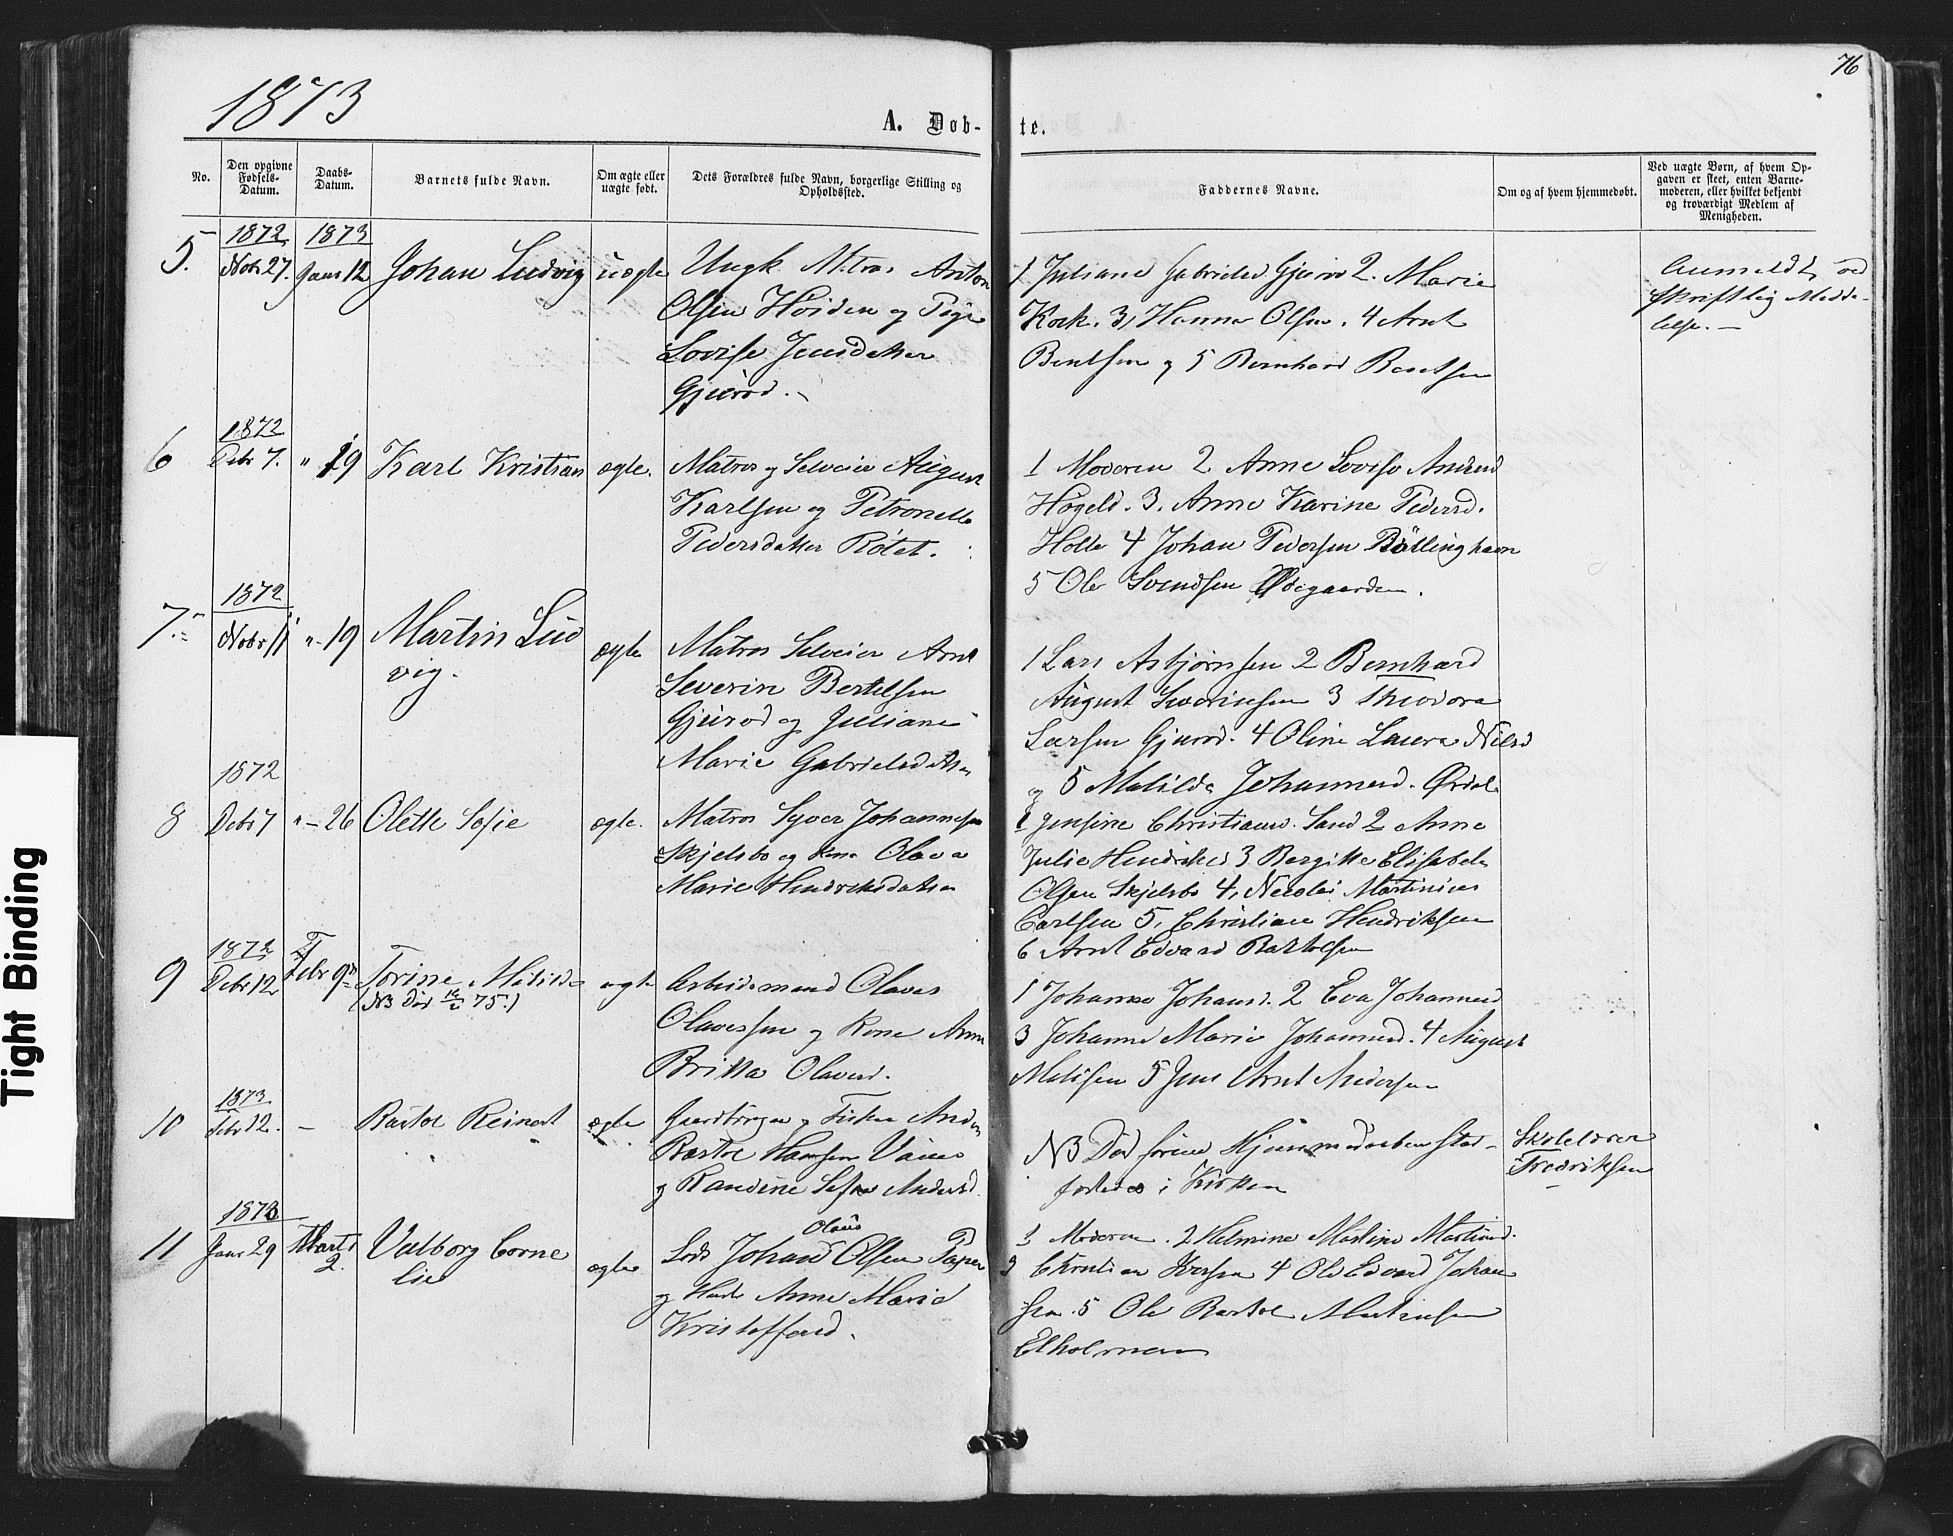 76
1873
A. Døb-te.
No.
Den opgivne Fødsels-Datum.
Daabs-Datum.
Barnets fulde Navn.
Om ægte eller uægte født.
Dets Forældres fulde Navn, borgerlige Stilling og Opholdssted.
Faddernes Navne.
Om og af hvem hjemmedøbt.
Ved uægte Børn, af hvem Opgaven er skeet, enten Barnemoderen, eller hvilket bekjendt og troværdigt Medlem af Menigheden.
5.
1872
Nobr 27.
1873
Janr 12
Johan Ludvig
uægte
Ungk. Matros Anton
Olsen Høiden og Pige
Lovise Jensdatter
Gjurød.
1 Juliane Gabrielsd Gjurød 2. Marie
Kock. 3, Hanna Olsen. 4 Arnt
Bentsen og 5 Bernhard Bentsen
Anmeldt ved
skriftlig Medde-
lelse. —
6
1872
Debr 7.
" 19
Karl Kristian
ægte.
Matros og Selveier August
Karlsen og Petronelle
Pedersdatter Rødt.
1 Moderen 2 Anne Lovise Andersd
3. Anne Karine Pedersd.
Holte 4 Johan Pedersen
5 Ole Svendsen Ødegaarden.
7.
1872
Nobr 11
" 19
Martin Lud
vig.
ægte
Matros Selveier Arnt
Severin Bertelsen
Gjurød og Juliane
Marie Gabrielsdatter
1 Lars Asbjørnsen 2 Bernhard
August Severinsen 3 Theodora
Larsen Gjurød. 4 Oline Laura Nilsd
og 5 Matilde Johannesd.
8
1872
Debr 7
" - 26
Olette Sofie
ægte.
Matros Syver Johannesen
Skjelsbo og Kone Olava
Marie Hendriksdatter
1 Jensine Christiansd. Sand 2 Anne
Julie Hendriksd 3 Bergitte Elisabet
Olsen Skjelsbo 4, Nicolai Martinius
Carlsen 5, Christian Hendriksen
6 Arnt Edvard Bartolsen
9
1872
Debr 12
Febr 9
Torine Matilde
(NB Død 75.)
ægte
Arbeidsmand Olaves
Olavessen og Kone Anne
Britta Olavesd.
1 Johanne Johansd. 2 Eva Johannesd
3 Johanne Marie Johannesd. 4 August
Matisen 5 Jens Arnt Andersen
10
1873
Febr 12.
—
Bartol Reinert
ægte
Gaardbruger og Fisker Anders
Bartol Hansen
og Randine Sofie Andersd.
NB Død førend Hjemmedaaben stad-
fæstedes i Kirken
Skolelærer
Fredriksen
11
1873
Janr 29
Marts
2.
Valborg Corne
lie
ægte
Olaus
Lods Johan Olsen Papper
og Hustr Anne Marie
Kristoffersd.
1 Moderen. 2 Helmine Martine Martinsd.
3 Christian Iversen 4 Ole Edvard Johan
sen. 5 Ole Bartol Martinsen
Elholmen
Tight Binding